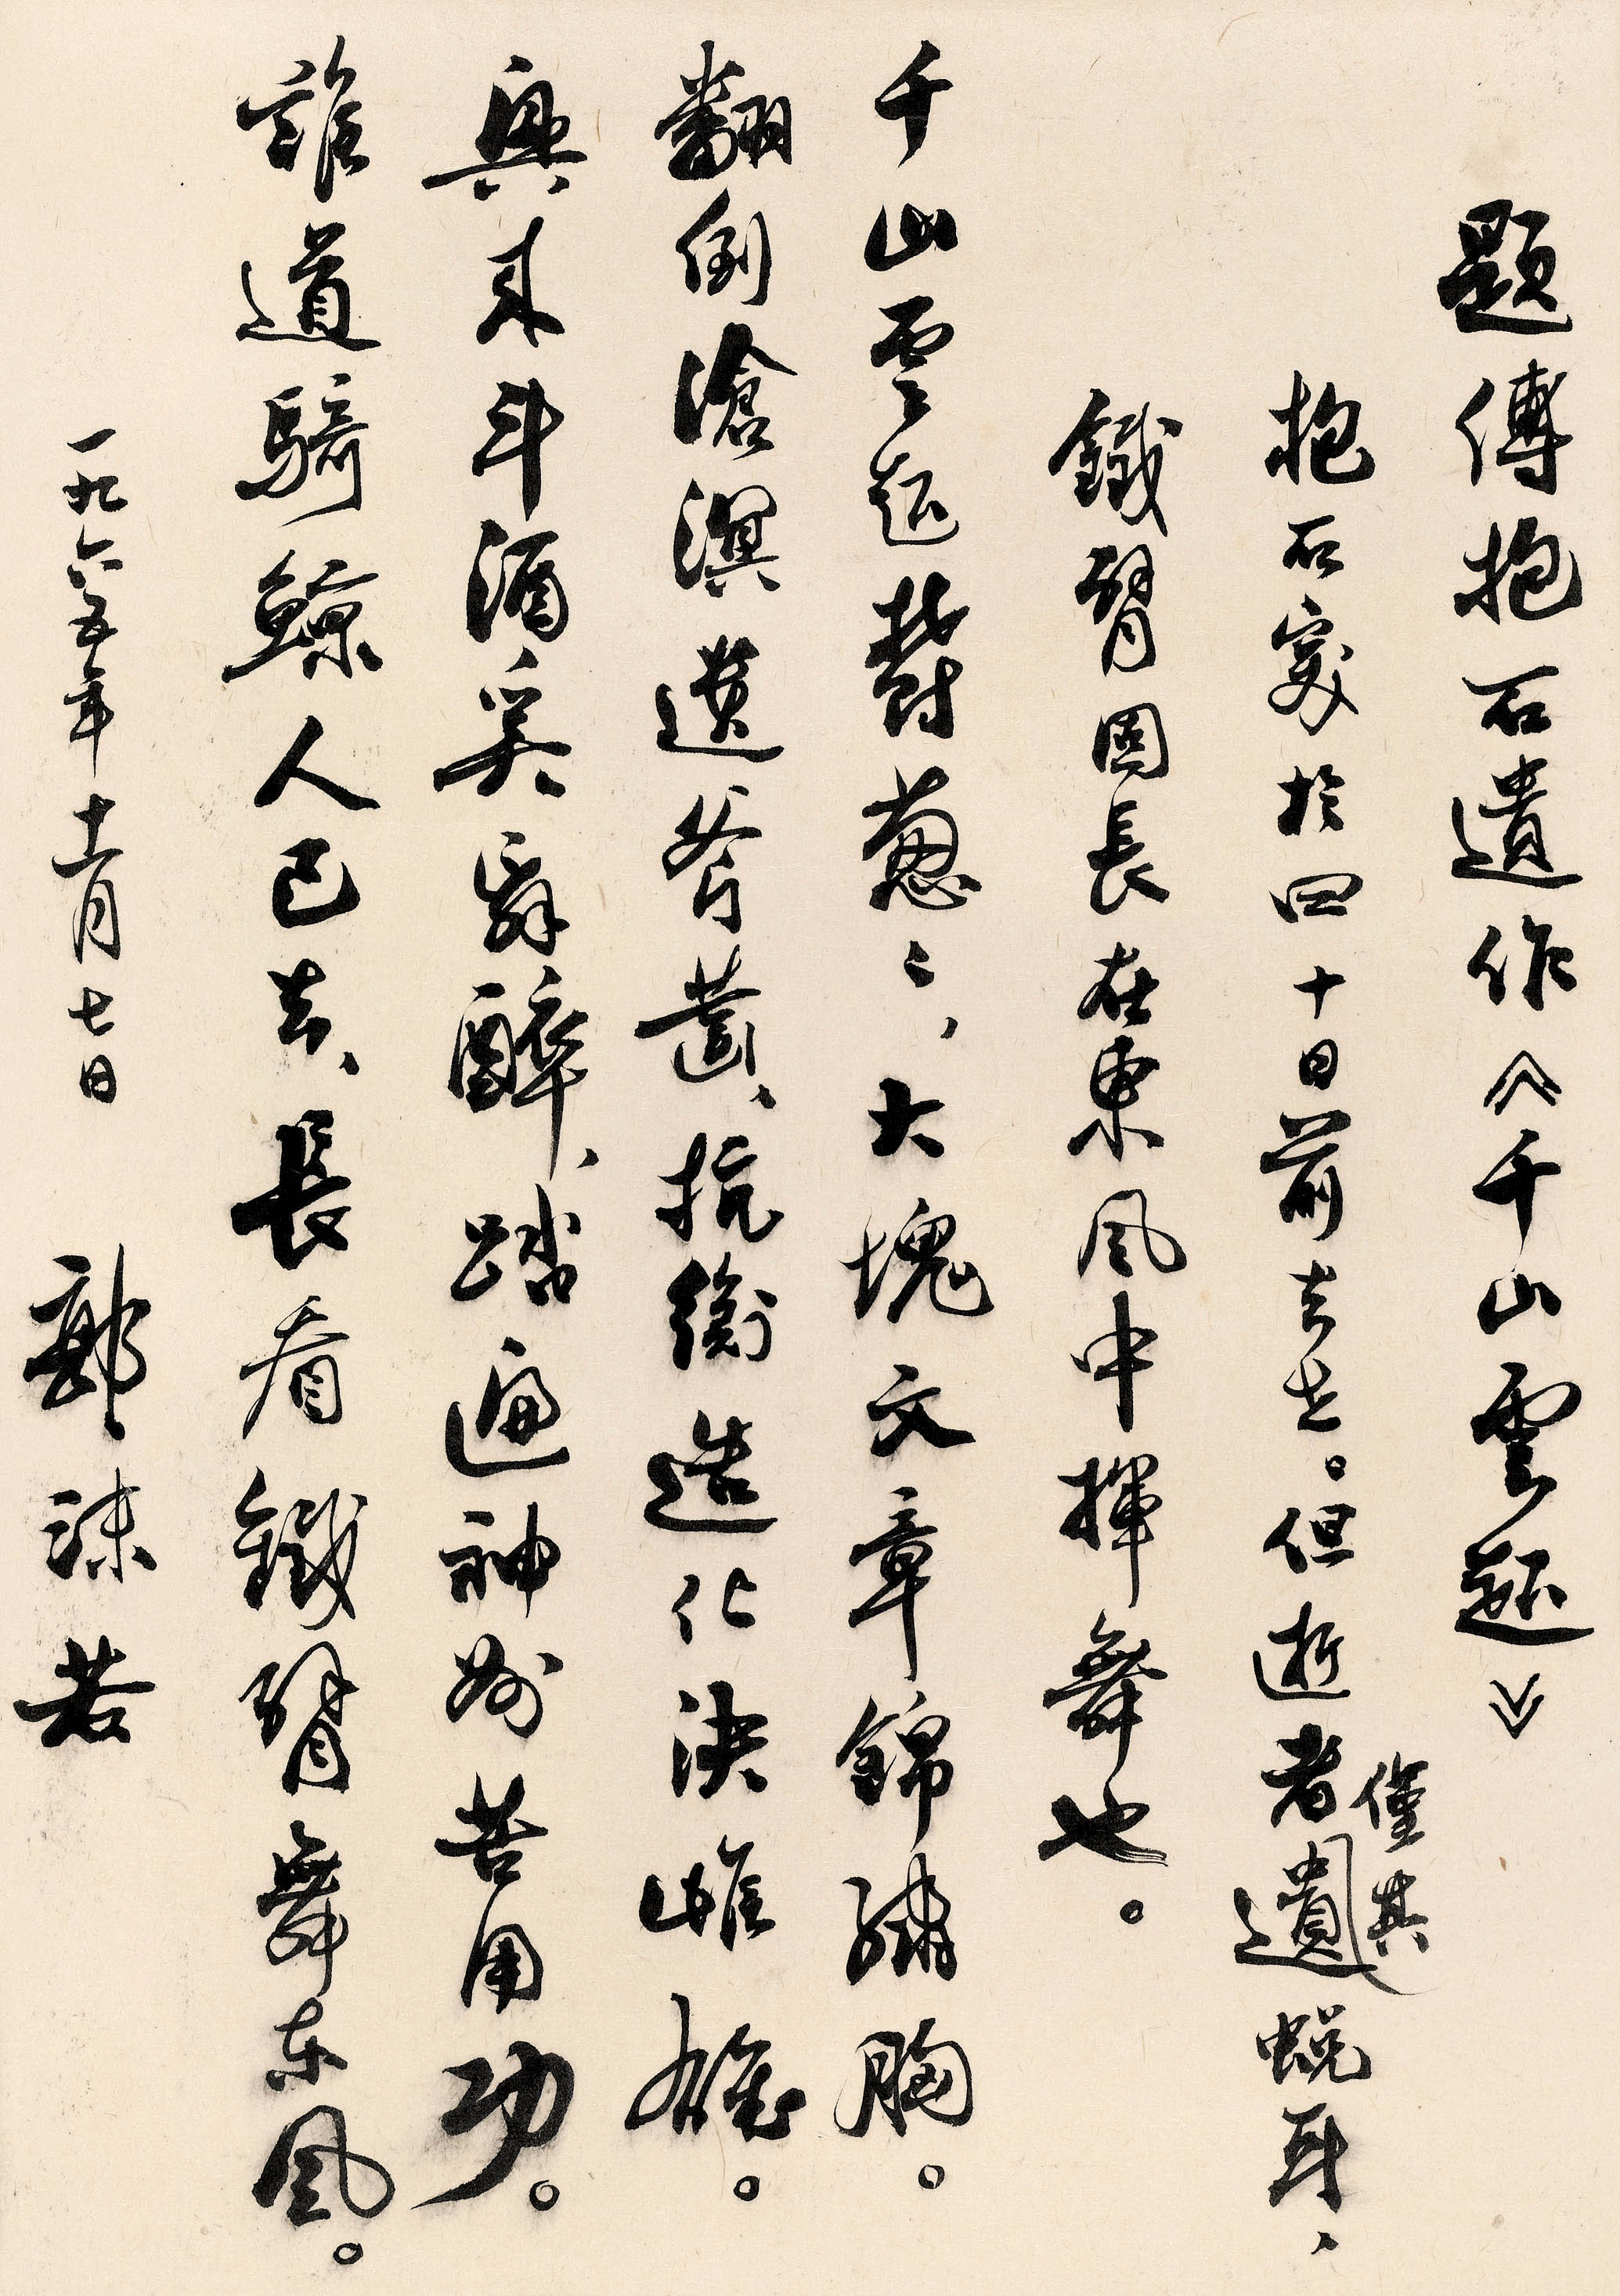 題傅抱石遺作《千山雲起》
抱石突於四十日前去世。但逝者僅其遺蜕耳、
鐵臂固長在東風中揮舞也。
千山雲起鬱葱〻、大塊文章錦繡胸。
翻倒滄溟遺斧凿、抗衡造化決雌雄。
興来斗酒奚辞醉、踏遍神州苦用功。
誰道騎鯨人已去、長看鐵臂舞东風。
一九六五年十一月七日 郭沫若